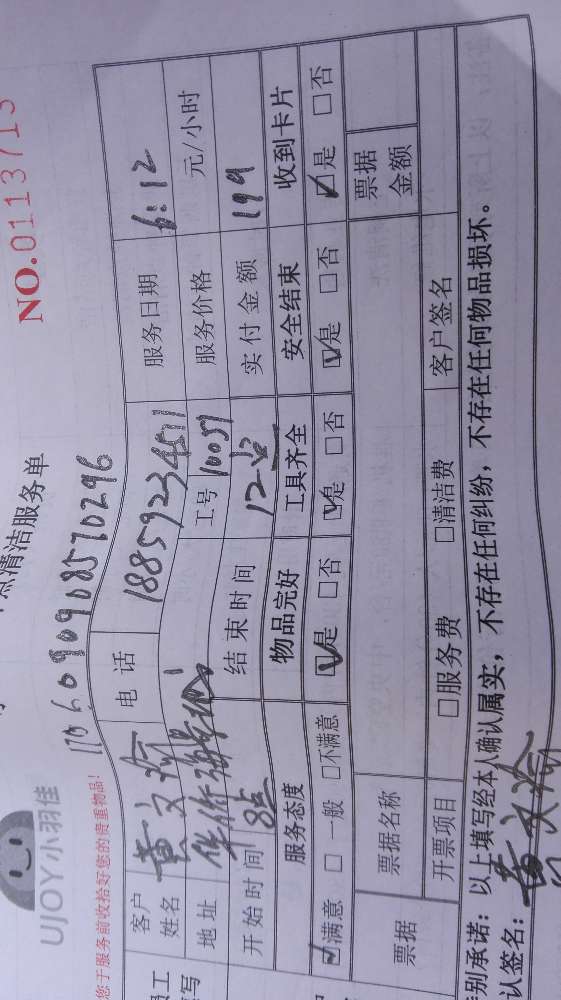 UJOY小羽佳
点清洁服务单
NO.0113713
您于服务前收拾好您的贵重物品!
1706090908570296
客户姓名 黄文瑜 电话 18859234571 服务日期 6.12
地址 工号 10057 服务价格 元/小时
开始时间 8点 结束时间 12点 实付金额 199
服务态度 物品完好 工具齐全 安全结束 收到卡片
☑满意 □一般 □不满意 ☑是 □否 ☑是 □否 ☑是 □否 ☑是 □否
票据 票据名称 票据金额
开票项目 □服务费 □清洁费 客户签名
别承诺:以上填写经本人确认属实,不存在任何纠纷,不存在任何物品损坏。
认签名:黄文瑜
员工
填写